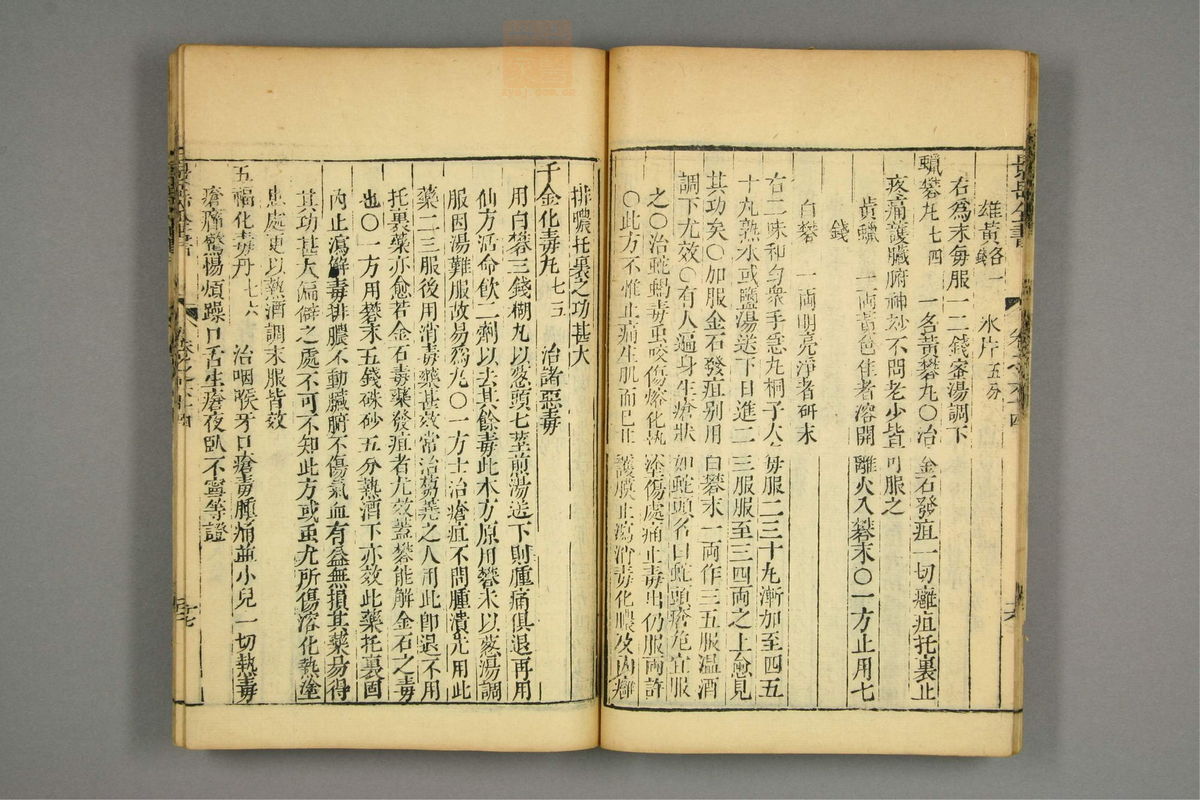 雄黃各一錢 氷片五分
右爲末每服一二錢蜜湯調下
蠟礬丸七四 一名黃礬丸〇治金石發疽一切癰疽托裏止
疼痛護臟腑神玅不問老少皆可服之
黃蠟一兩黃色佳者溶開離火入礬末〇一方止用七
錢
白礬一兩明亮淨者研末
右二味和勻衆手急丸桐子大每服二三十丸漸加至四五
十丸熟水或鹽湯送下日進二三服服至三四兩之上愈見
其功矣〇加服金石發疽别用白礬末一兩作三五服温酒
調下尤效〇有人遍身生瘡狀如蛇頭名曰蛇頭瘡尤宜服
之〇治蛇蝎毒虫咬傷溶化熱塗傷處痛止毒出仍服兩許
〇此方不惟止痛生肌而已其護膜止瀉消毒化膿及内癰
排膿托裏之功甚大
千金化毒丸七五 治諸惡毒
用白礬三錢糊丸以葱頭七莖煎湯送下則腫痛俱退再用
仙方活命飲二劑以去其餘毒此木方原用礬末以葱湯調
服因湯難服故易爲丸〇一方士治瘡疽不問腫潰先用此
藥二三服後用消毒藥甚效常治蒭蕘之人用此卽退不用
托裏藥亦愈若金石毒藥發疽者尤效蓋礬能解金石之毒
也〇一方用礬末五錢硃砂五分熱酒下亦效此藥托裏固
内止瀉解毒排膿不動臟腑不傷氣血有益無損其藥易得
其功甚大偏僻之處不可不知此方或虫尤所傷溶化熱塗
患處更以熱酒調末服皆效
五福化毒丹七六 治咽喉牙口瘡毒腫痛並小兒一切熱毒
瘡癤驚惕煩躁口舌生瘡夜臥不寧等證